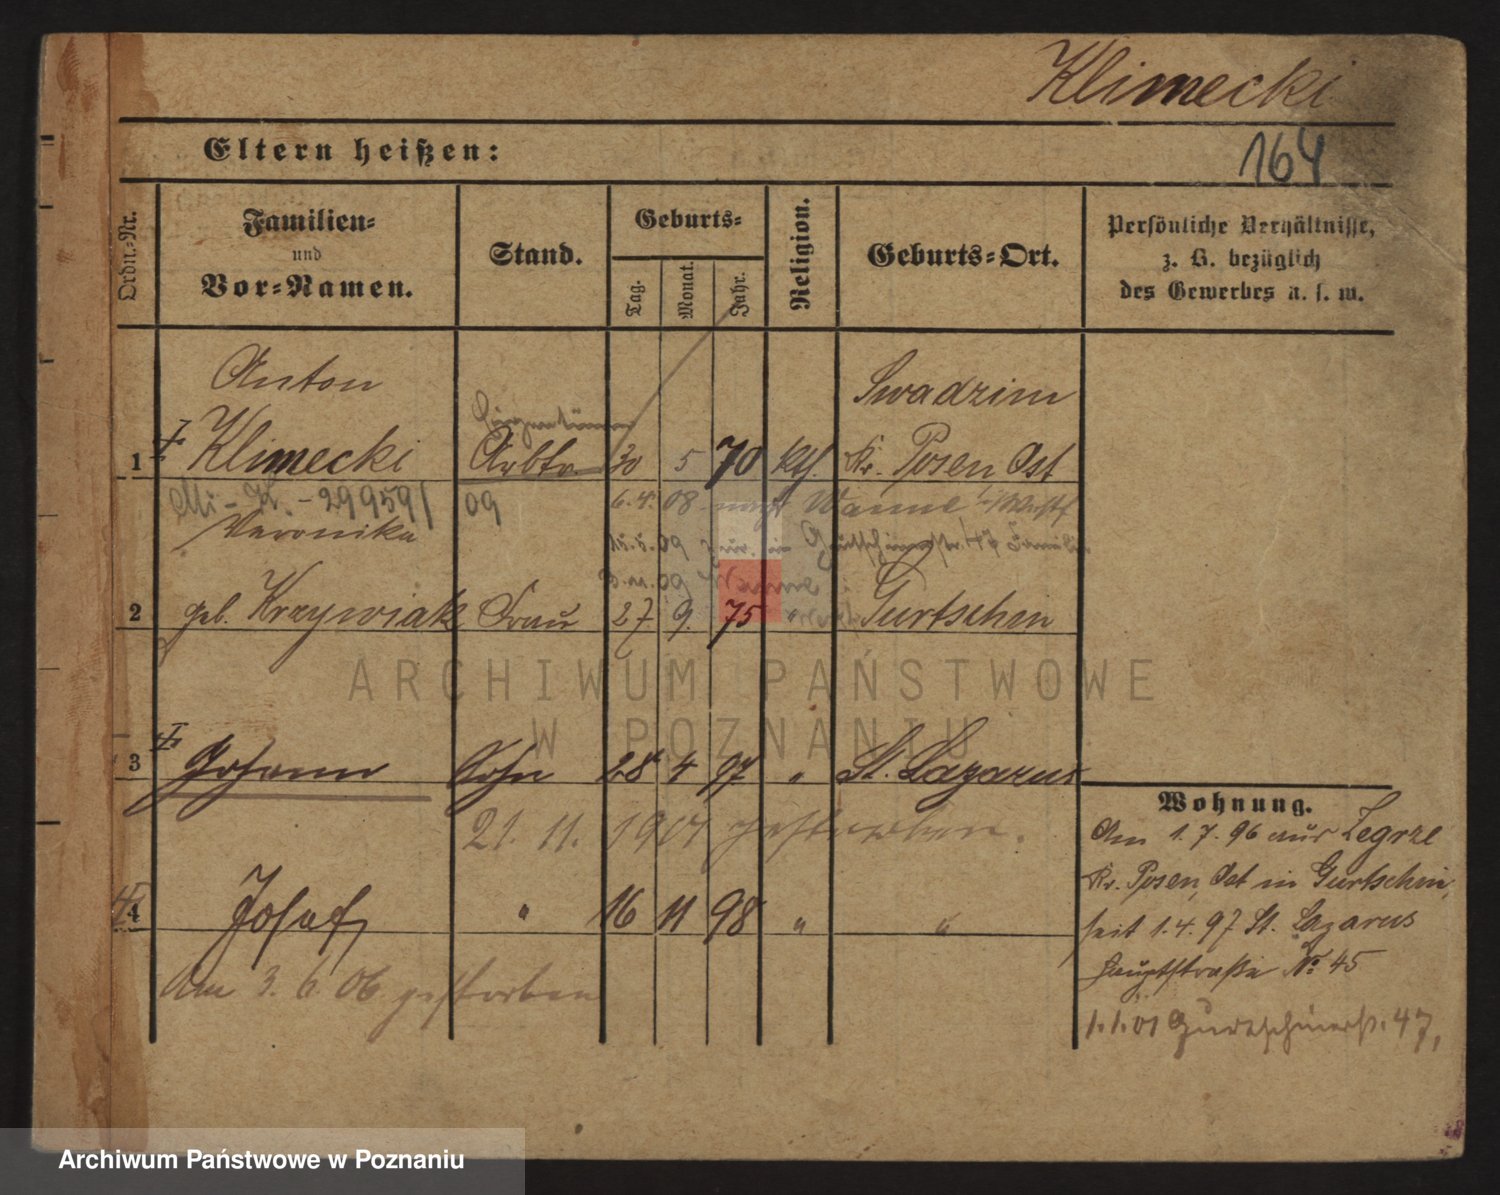 Klimecki
164
Eltern heißen:
Ordn.-Nr.
Familien-
und
Vor-Namen.
Stand.
Geburts-
Tag.
Monat.
Jahr.
Religion.
Geburts-Ort.
Persönliche Verhältnisse,
z. B. bezüglich
des Gewerbes u. s. w.
Anton Swadzim
1 Klimecki Arbtr. 30 5 70 kth. Kr. Posen Ost
Mi-K.-29959/09 6.4.08 nach Wanne i/Westf
Veronika
2 geb. Krzywiak Frau 27 9. 75 " Gurtschin
ARCHIWUM PAŃSTWOWE
W POZNANIU
3 Johann Sohn 28 4 97 " St. Lazarus
21. 11. 1907 gestorben.
4 Josef " 16 11 98 " "
Am 3. 6. 06 gestorben
Wohnung.
Am 1.7.96 aus Zegrze
Kr. Posen Ost in Gurtschin,
seit 1.4.97 St. Lazarus
Hauptstraße No 45
1.1.01 Gurtschinerstr. 47,
Archiwum Państwowe w Poznaniu